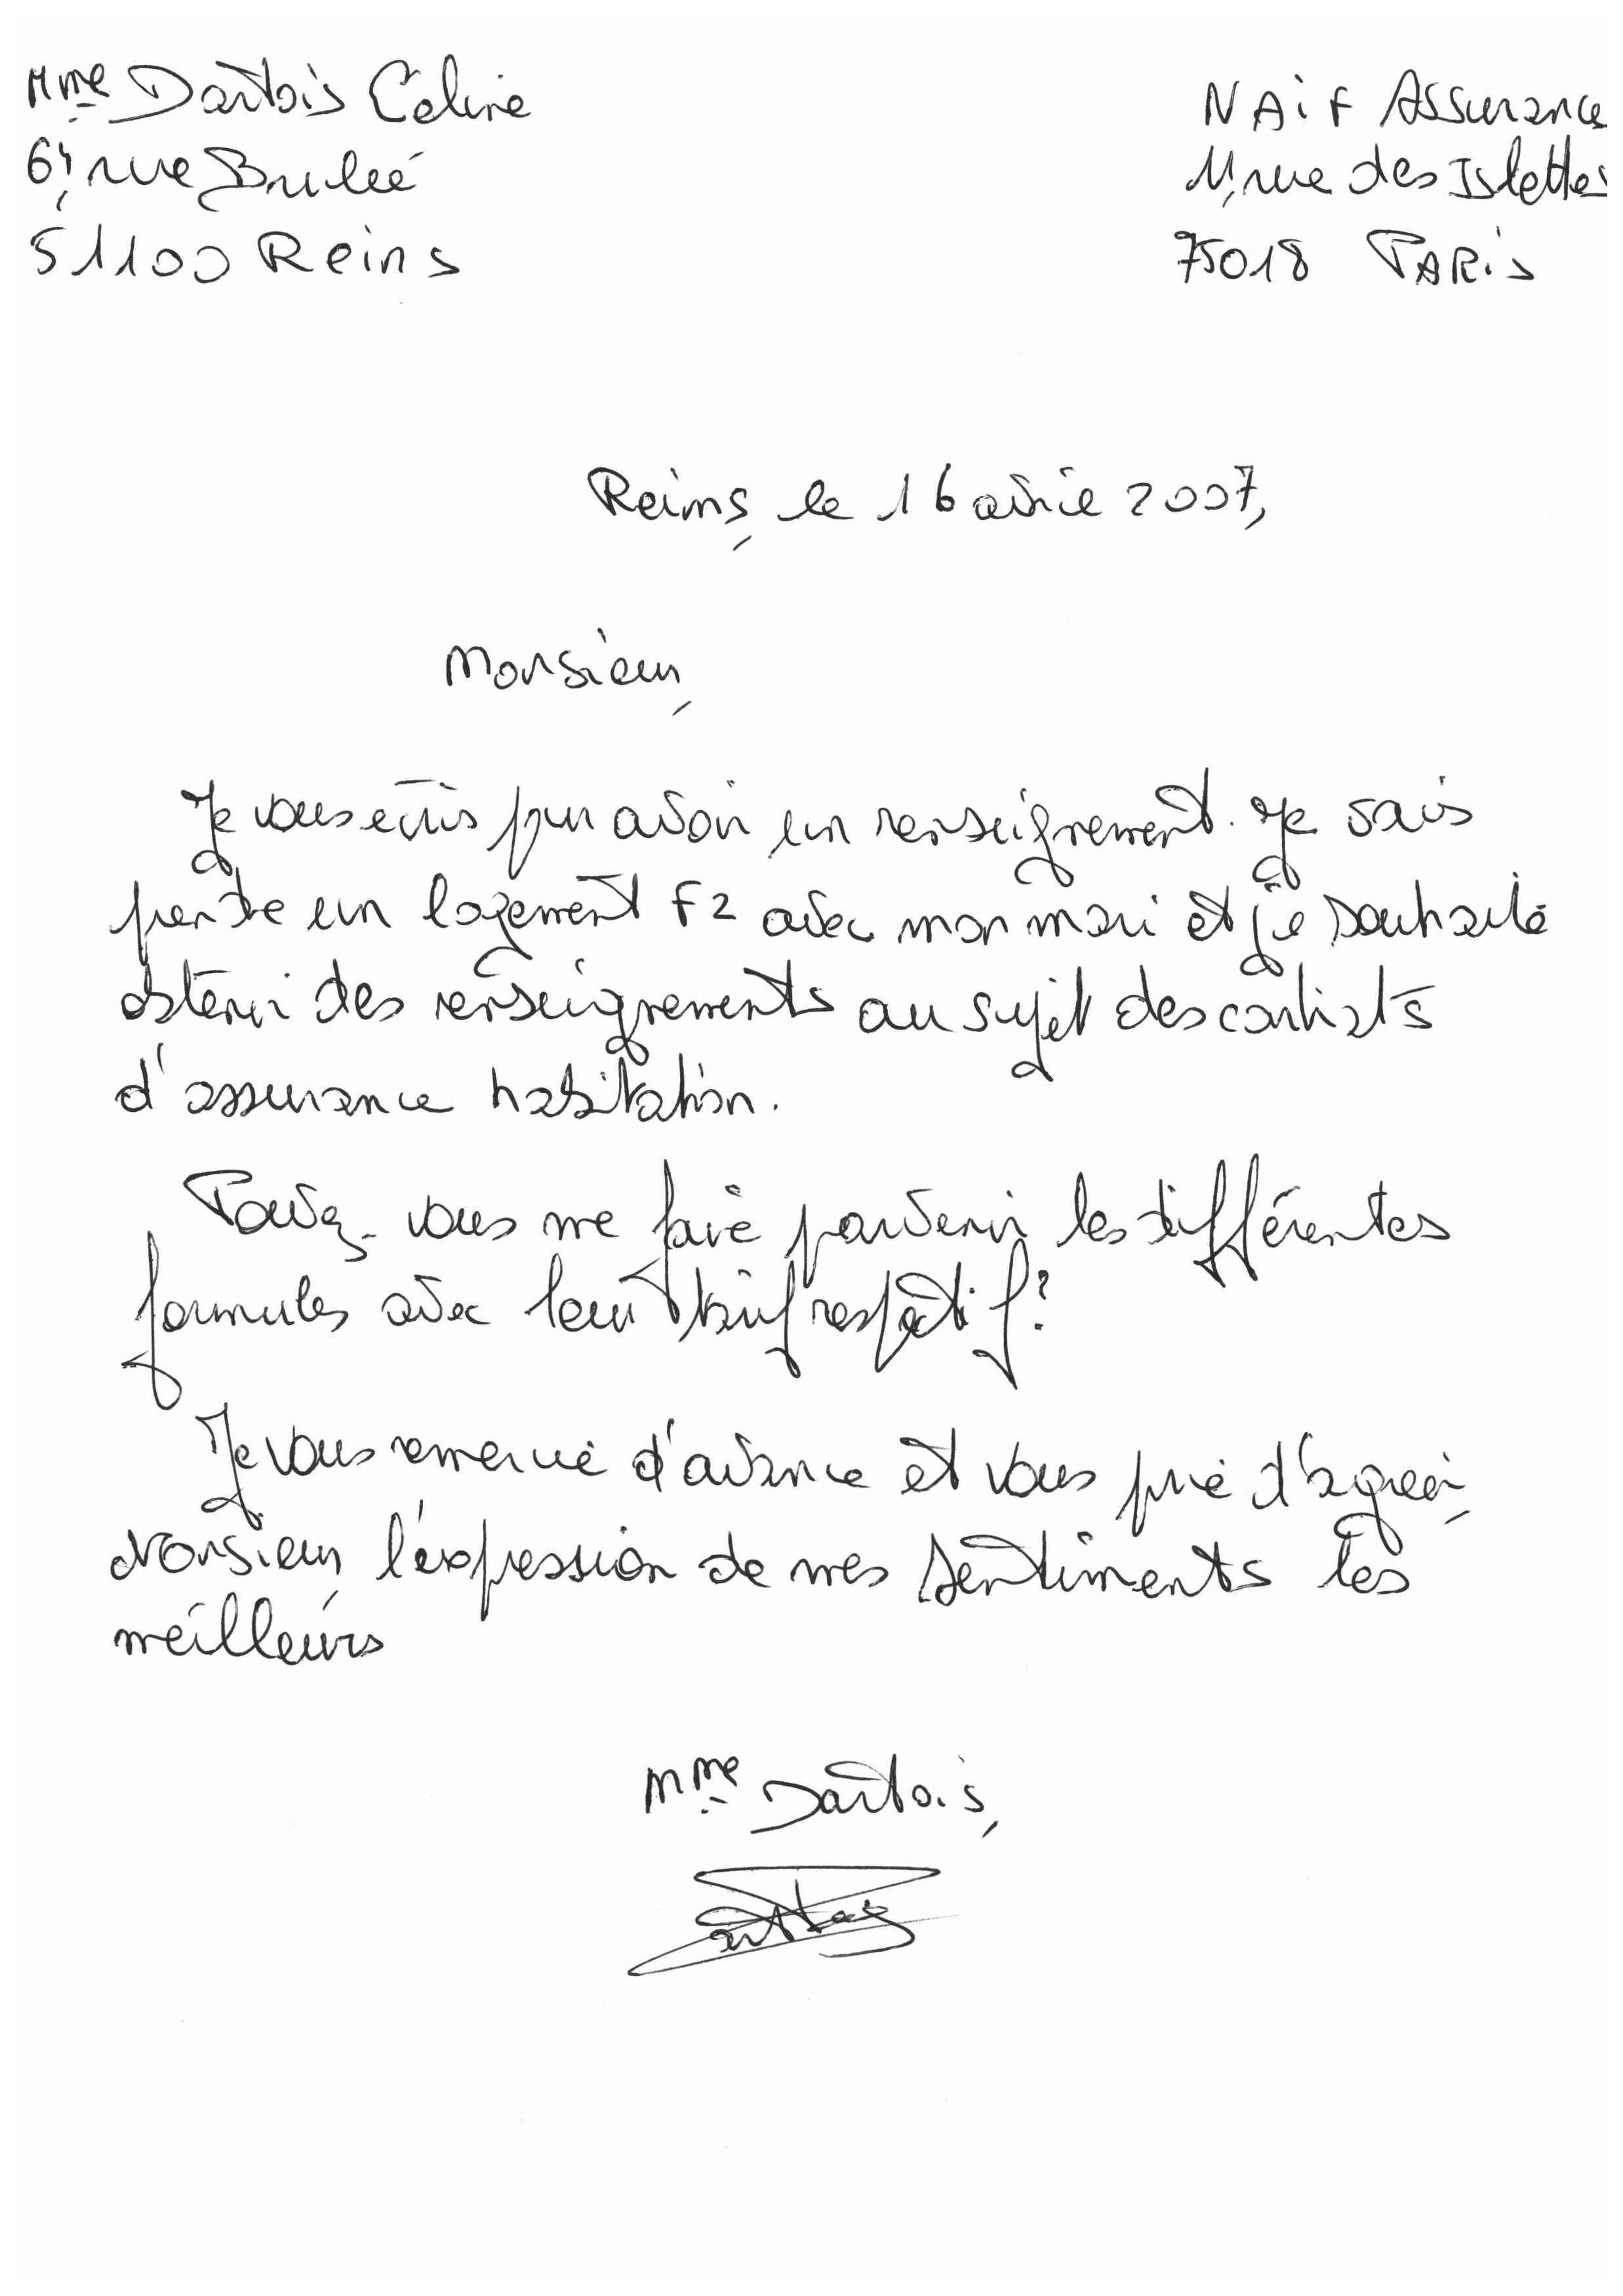 Mme Dartois Celine
61, rue Bruleé
51100 Reims
NAiF Assurance
11, rue des Islettes
75018 PARis
Reims, le 16 avril 2007,
Monsieur,
Je vous écris pour avoir un renseignement. Je vais
prendre un logement F2 avec mon mari et je souhaite
obtenir des renseignements au sujet des contrats
d'assurance habitation.
Pouvez-vous me faire parvenir les différentes
formules avec leur tarif respectif ?
Je vous remercie d'avance et vous prie d'agréer,
Monsieur, l'expression de mes sentiments les
meilleurs
Mme Dartois,